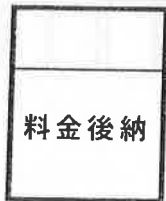 料金後納